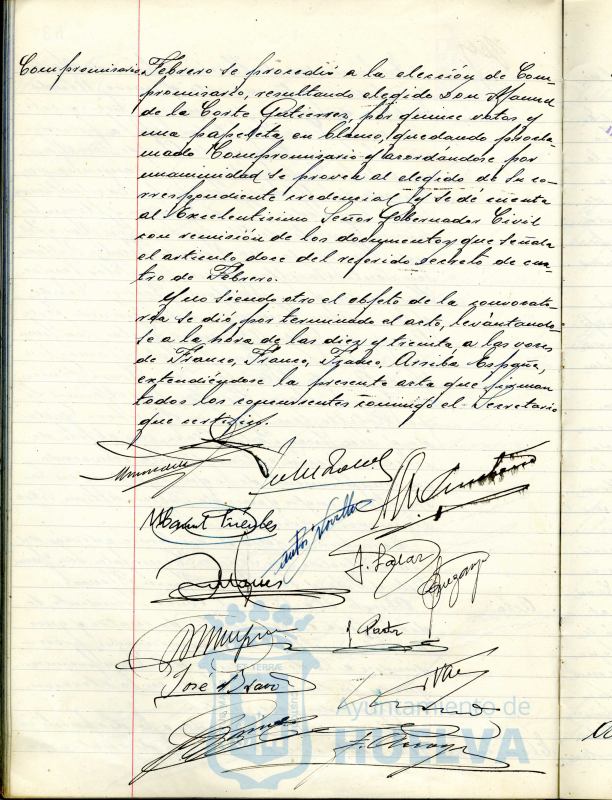 Compromisario Febrero se procedió a la elección de Com-
promisario, resultando elegido Don Manuel
de la Corte Gutierrez, por quince votos y
una papeleta en blanco, quedando procla-
mado Compromisario y acordándose por
unanimidad se provea al elegido de su co-
rrespondiente credencial y se dé cuenta
al Excelentísimo Señor Gobernador Civil
con remisión de los documentos que señala
el articulo doce del referido Decreto de cua-
tro de Febrero.
Y no siendo otro el objeto de la convocato-
ria se dió por terminado el acto, levantando-
se a la hora de las diez y treinta a las voces
de Franco, Franco, Franco, Arriba España,
extendiéndose la presente acta que firman
todos los concurrentes conmigo el Secretario
que certifico.
Manuel Fuentes
J. Salas
José
Ayuntamiento de
HUELVA